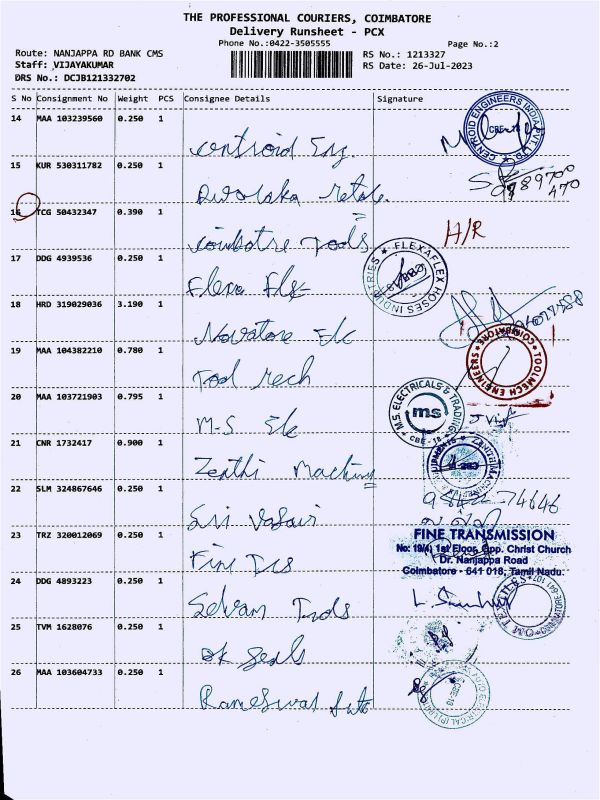 THE PROFESSIONAL COURIERS, COIMBATORE
Delivery Runsheet - PCX
Phone No.:0422-3505555
Page No.:2
Route: NANJAPPA RD BANK CMS
RS No.: 1213327
Staff: VIJAYAKUMAR
RS Date: 26-Jul-2023
DRS No.: DCJB121332702
S No Consignment No Weight PCS Consignee Details Signature
14 MAA 103239560 0.250 1
CENTROID ENGINEERS INDIA PVT LTD
Centroid Eng.
15 KUR 530311782 0.250 1
Dwolaka
16 TCG 50432347 0.390 1
Coimbatre Tools
H/R
17 DDG 4939536 0.250 1
FLEXAFLEX HOSES INDUSTRIES
Flexa Flex
18 HRD 319029036 3.190 1
Novatore Elc
19 MAA 104382210 0.780 1
TOOLMECH ENGINEERS COIMBATORE
Tool Mech
20 MAA 103721903 0.795 1
M.S. ELECTRICALS & TRADING
ms
CBE-18
M-S Ele
21 CNR 1732417 0.900 1
Zenthi Machiny
22 SLM 324867646 0.250 1
98422-74646
Sri Vasavi
23 TRZ 320012069 0.250 1
FINE TRANSMISSION
No: 19(4) 1st Floor, Opp. Christ Church
Dr. Nanjappa Road
Coimbatore - 641 018, Tamil Nadu.
Fine Tes
24 DDG 4893223 0.250 1
Selvam Tools
25 TVM 1628076 0.250 1
OK Seals
26 MAA 103604733 0.250 1
Rameswar